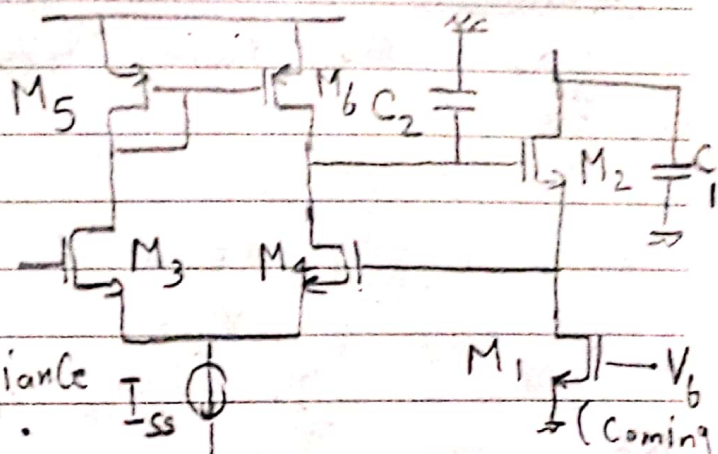 M5
M6
C2
M2
C1
M3
M4
M1
Vb
iance
Iss
.
(Coming